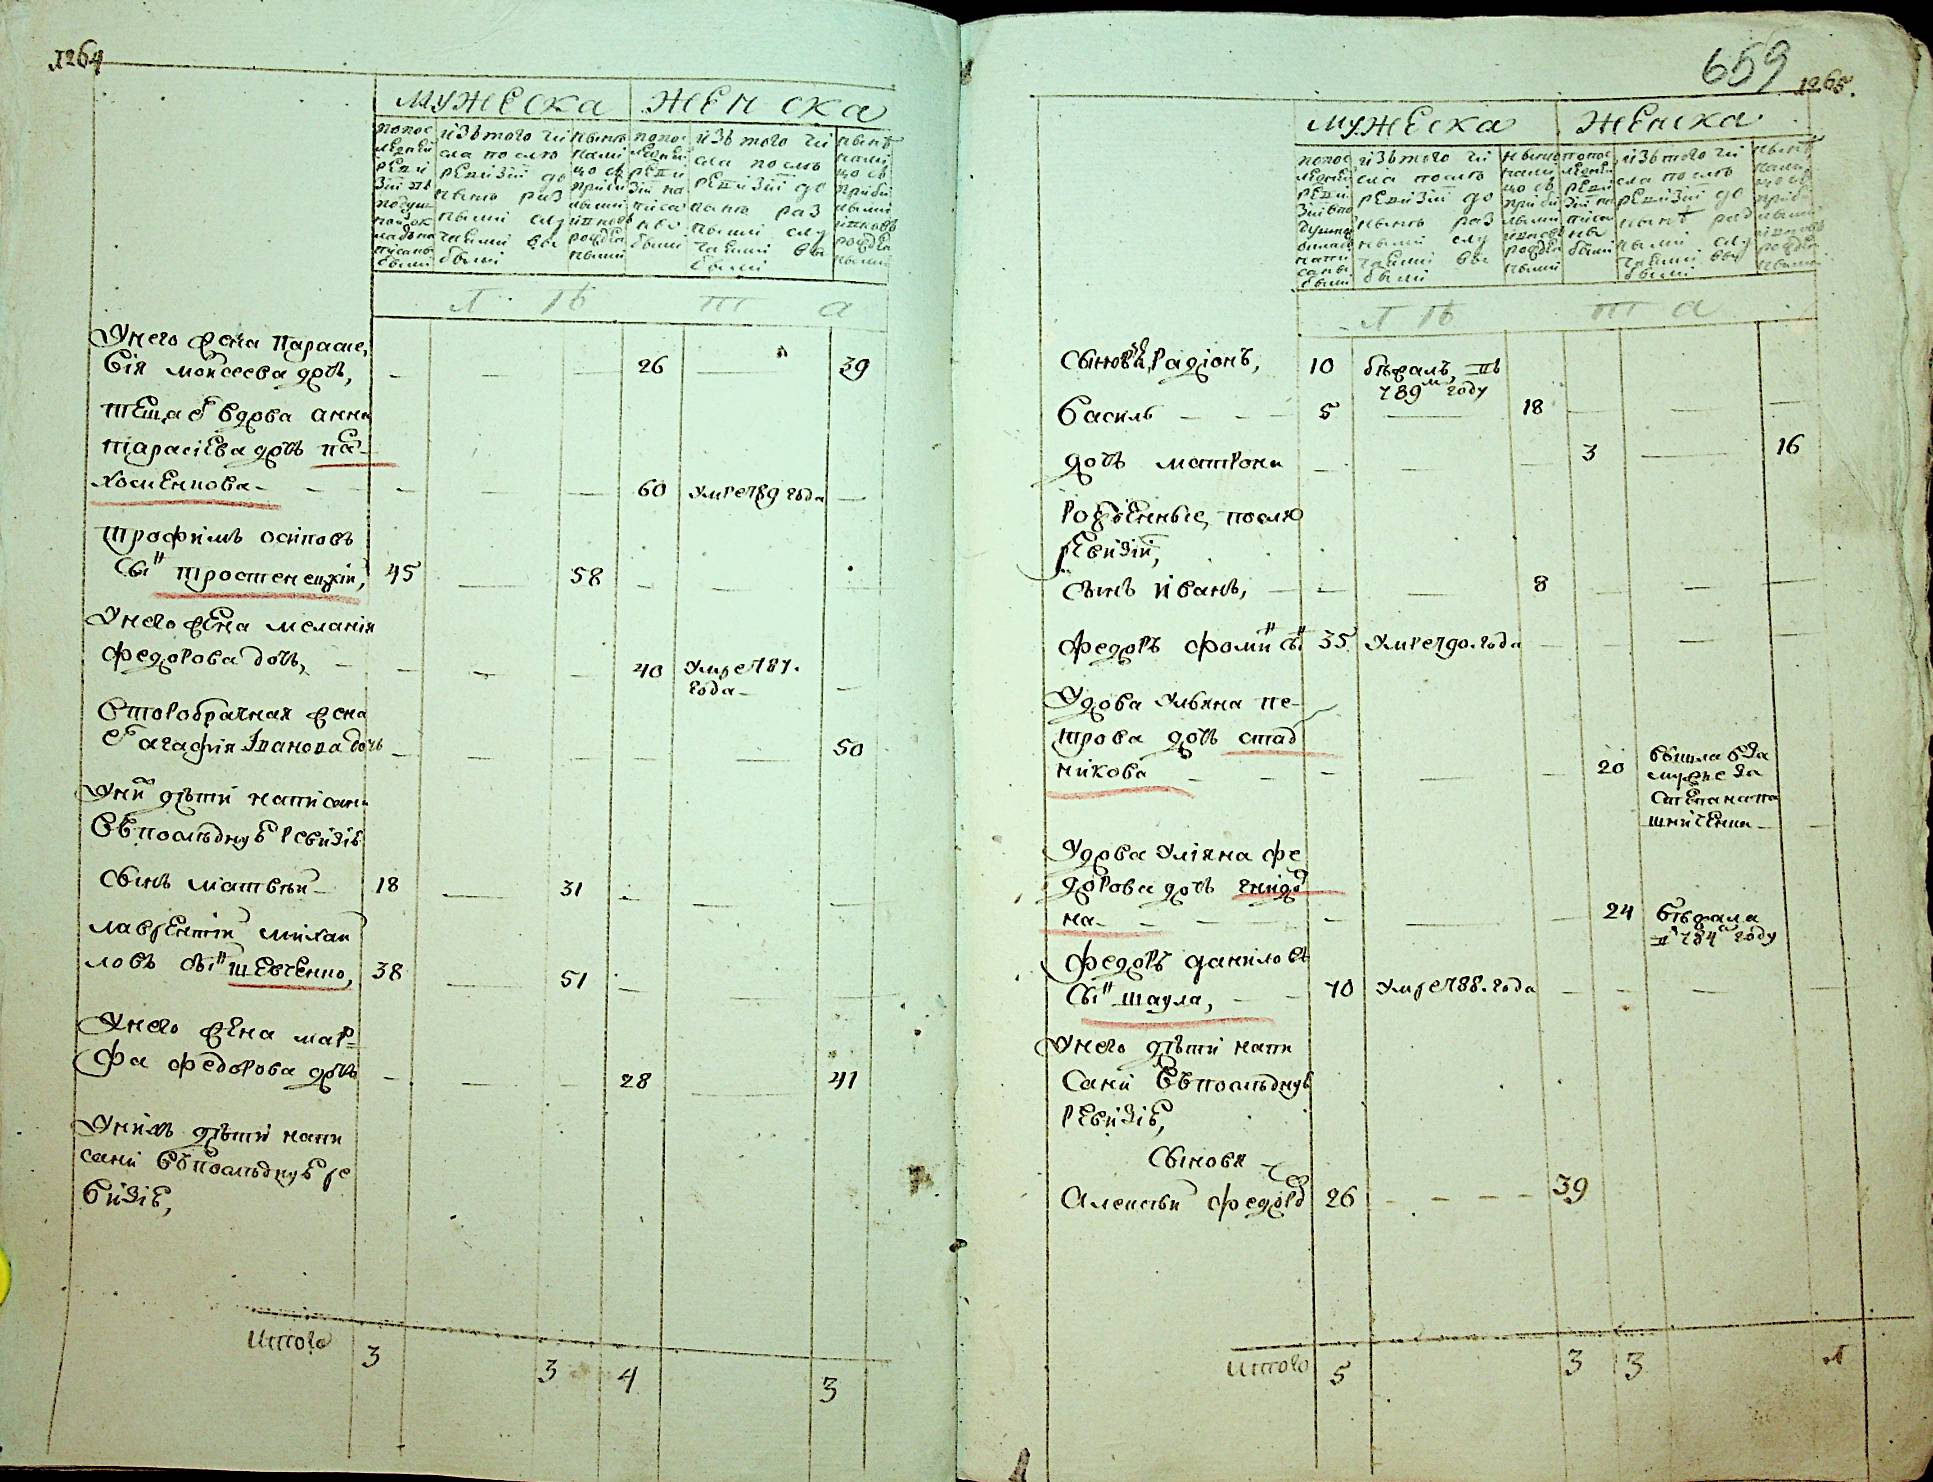 1264
мужеска женска
попос леднеи реви зіи въ подуш ной ок ладъ на писаны были
изъ того чи сла послѣ ревизіи до нынѣ раз ными слу чаями вы были
нынѣ нали цо съ прибы лыми и вновь рожден ными
попос ледней реви зіи на писа ны были
изъ того чи сла послѣ ревизіи до нынѣ раз ными слу чаями вы были
нынѣ нали цо съ прибы лыми и вновь рожден ными
Л Ѣ Т А
Унего жена Параске
вія моисеева дочь, 26 39
теща Ево вдова анна
тарасіева дочь па
хоменкова 60 умре 789 года
Трофимъ осиповъ
сынъ тростенецкій, 45 58
Унего жена меланія
федорова дочь, 40 умре 787.
года
Второбрачная жена
Ево агафія Іванова дочь 50
Уних дѣти написани
Въ последнуе ревизіе
Сынъ матвѣй 18 31
лаврентій михаи
ловъ сынъ шевченко, 38 51
Унего жена мар
фа федорова дочь 28 41
Унихъ дѣти напи
сани въ последнуе ре
визіе,
Итого 3 3 4 3
659
1265.
мужеска женска
попос леднеи реви зіи въ по душном окладѣ напи саны были
изъ того чи сла послѣ ревизіи до нынѣ раз ными слу чаями вы были
нынѣ нали цо съ прибы лыми и вновь рожден ными
попос леднеи реви зіи на писа ны были
изъ того чи сла послѣ ревизіи до нынѣ раз ными слу чаями вы были
нынѣ нали цо съ прибы лыми и вновь рожден ными
Л Ѣ Т А
Сыновя, Радіонъ, 10 бѣжалъ, въ
789м году
Василь 5 18
дочь матрона 3 16
Рожденные, послѣ
ревизіи,
сынъ иванъ, 8
Федоръ фоминъ сынъ 35 умре 790. года
Удова Ульяна пе
трова дочь стад
никова 20 вышла вза
мужъе за
Степана па
шниченка
Удова Уліяна фе
дорова дочь гнидо
на 24 бѣжала
въ 784м году
Федоръ данилов
сынъ шаула, 70 умре 788. года
Унего дѣти напи
сани въ последнуе
ревизіе,
Сыновя
Алексѣй федоръ 26 39
Итого 5 3 3 1